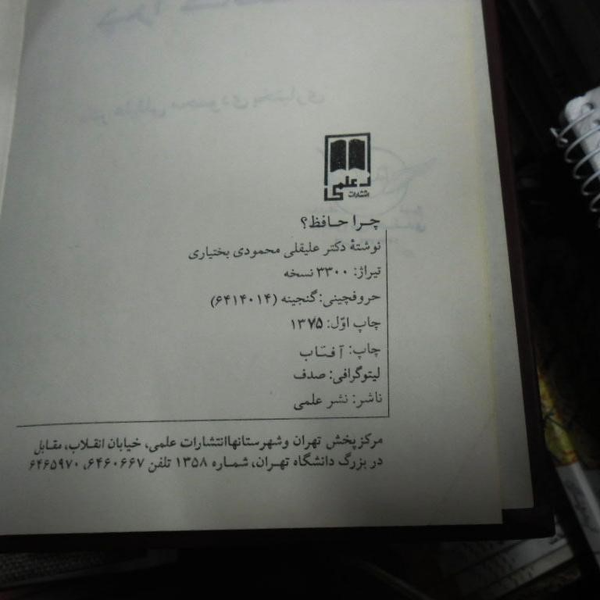 علمی
انتشارات
چـرا حـافظ؟
نوشتهٔ دکتر علیقلی محمودی بختیاری
تیراژ: ۳۳۰۰ نسخه
حروفچینی: گنجینه (۶۴۱۴۰۱۴)
چاپ اوّل: ۱۳۷۵
چاپ: آفتاب
لیتوگرافی: صدف
ناشر: نشر علمی
مرکزپخش تهران وشهرستانهاانتشارات علمی، خیابان انقلاب، مقابل
در بزرگ دانشگاه تهران، شماره ۱۳۵۸ تلفن ۶۴۶۰۶۶۷، ۶۴۶۵۹۷۰